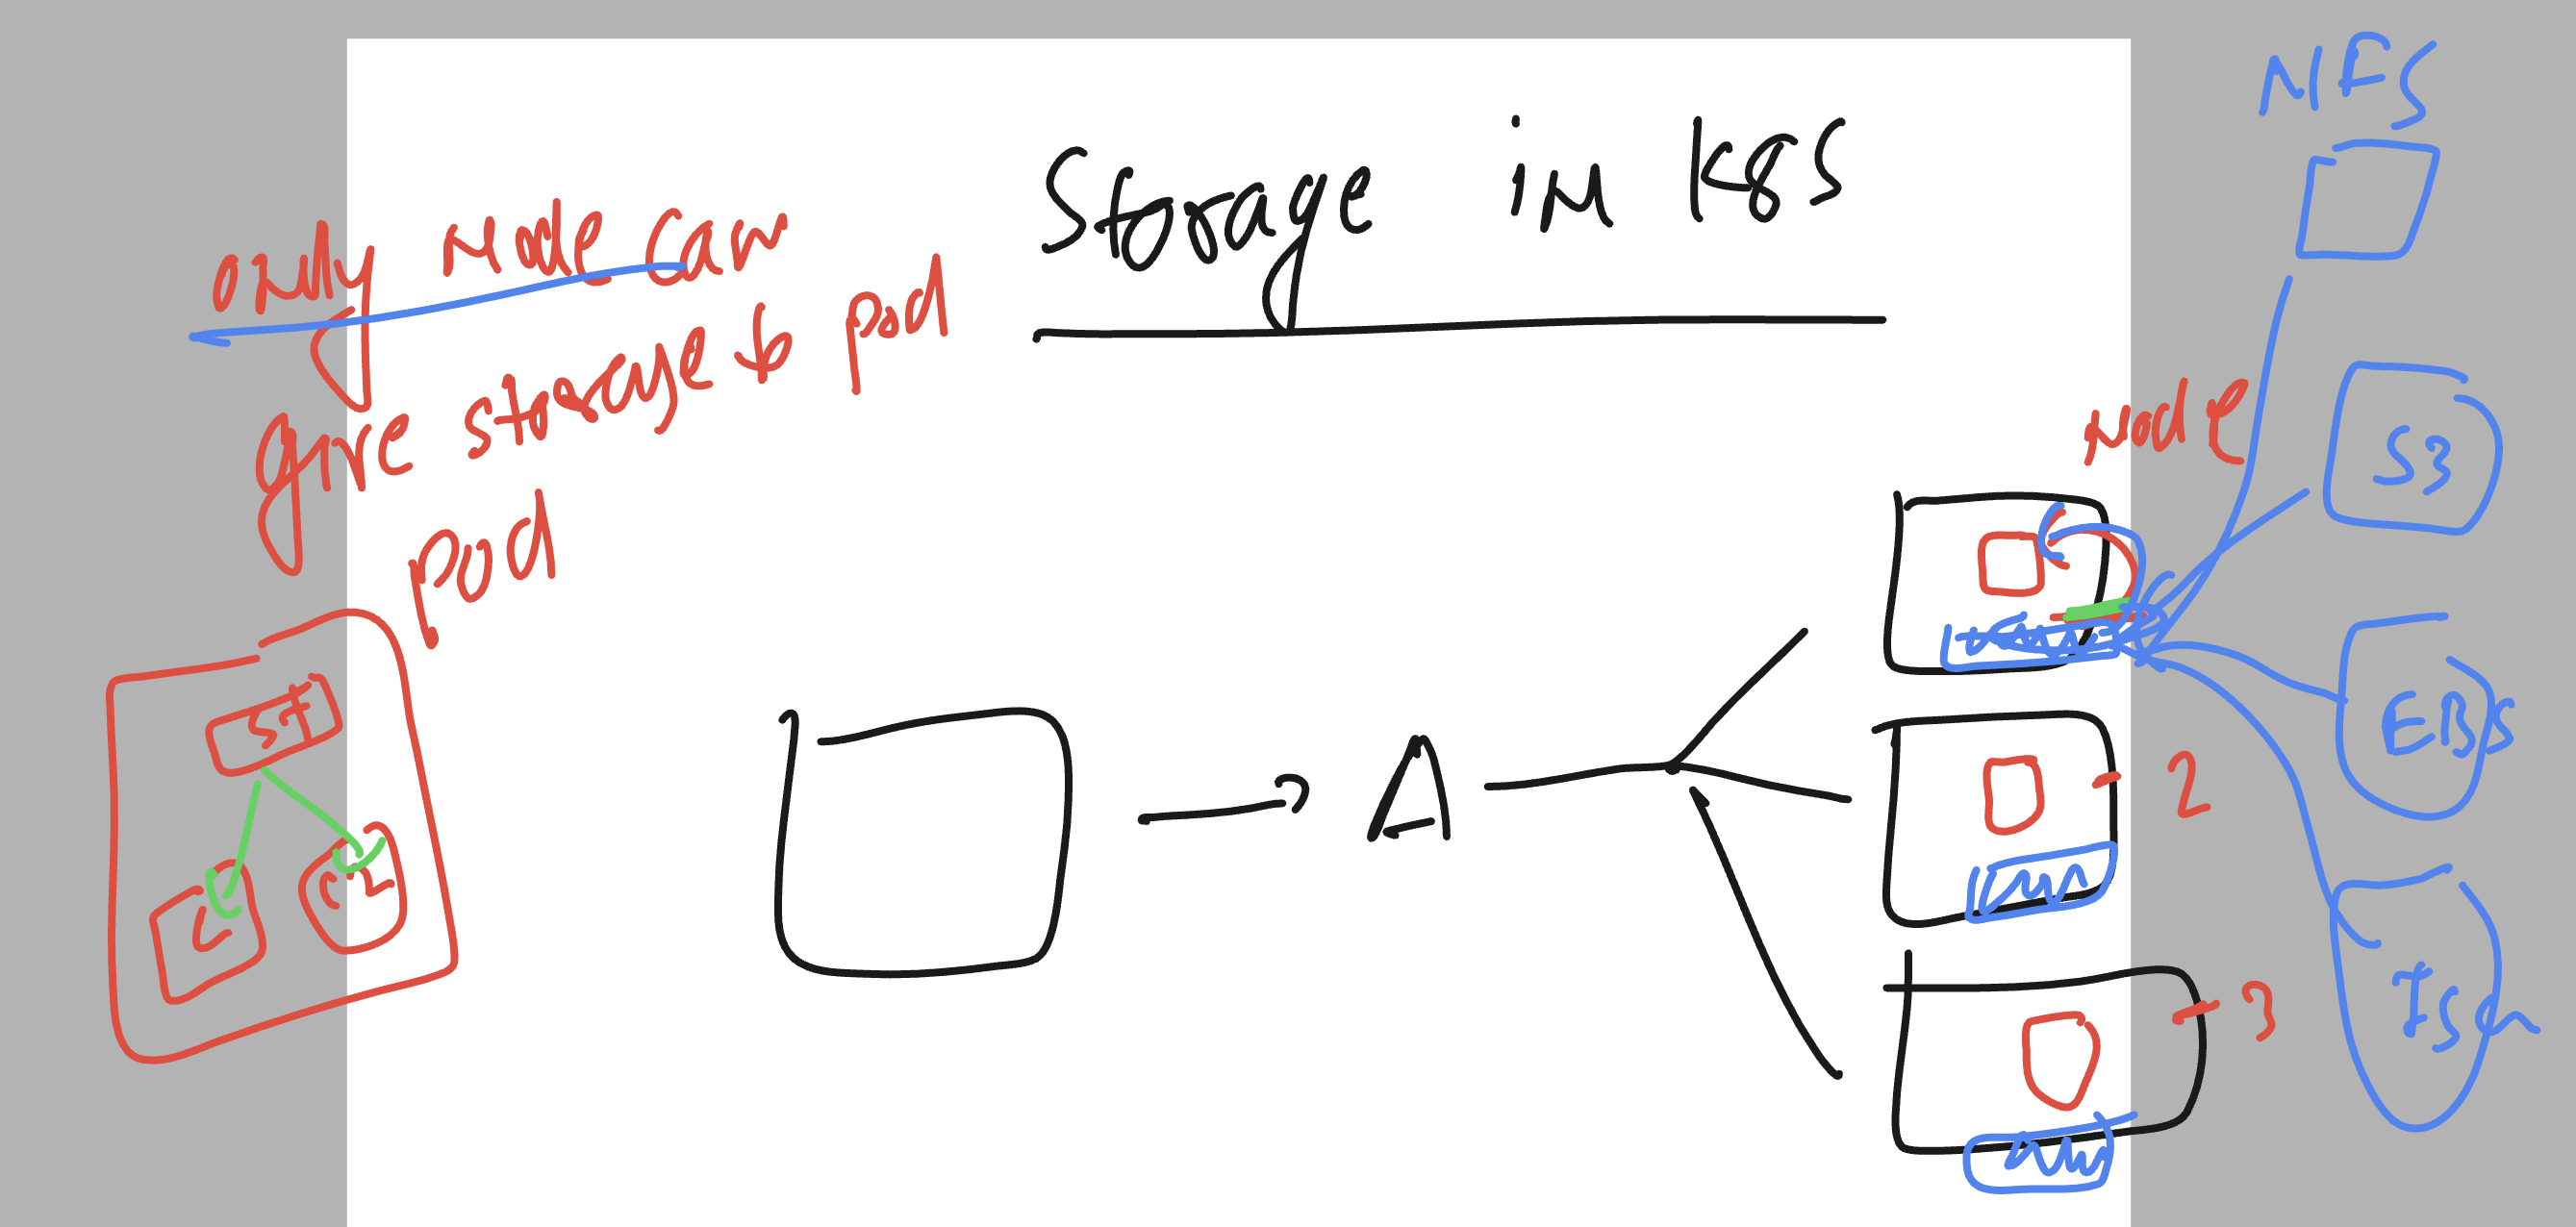 Storage in K8S
only Node can
give storage to pod
pod
st
C
C2
A
Node
2
3
NFS
S3
EBS